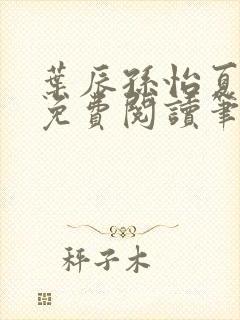 葉辰孫怡夏
免費閱讀筆
秤子木